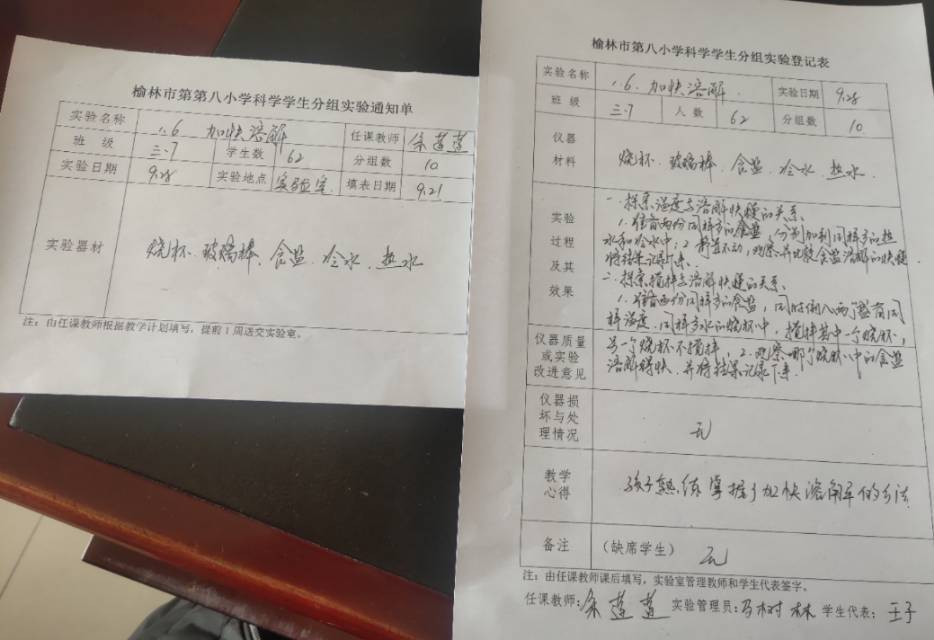 榆林市第第八小学科学学生分组实验通知单
实验名称 1.6 加快溶解 任课教师
班 级 三.7 学生数 62 分组数 10
实验日期 9.28 实验地点 实验室 填表日期 9.21
实验器材 烧杯、玻璃棒、食盐、冷水、热水
注:由任课教师根据教学计划填写,提前1周送交实验室。
榆林市第八小学科学学生分组实验登记表
实验名称 1.6 加快溶解 实验日期 9.28
班 级 三.7 人 数 62 分组数 10
仪器
材料
烧杯、玻璃棒、食盐、冷水、热水.
实验
过程
及其
效果
一.探索温度与溶解快慢的关系
1.准备两份同样多的食盐,分别加利同样多的热
水和冷水中;2.静置不动,观察并比较食盐溶解的快慢.
将结果记录下来.
二.探索搅拌与溶解快慢的关系.
1.准备两份同样多的食盐,同时倒入两个盛有同
样温度、同样多水的烧杯中,搅拌其中一个烧杯,
仪器质量
或实验
改进意见
另一个烧杯不搅拌,2.观察哪个烧杯中的食盐
溶解得快.并将结果记录下来.
仪器损
坏与处
理情况
无
教学
心得
孩子熟练掌握了加快溶解的方法
备注 (缺席学生) 无
注:由任课教师课后填写,实验室管理教师和学生代表签字。
任课教师: 实验管理员:马树林 学生代表:王子